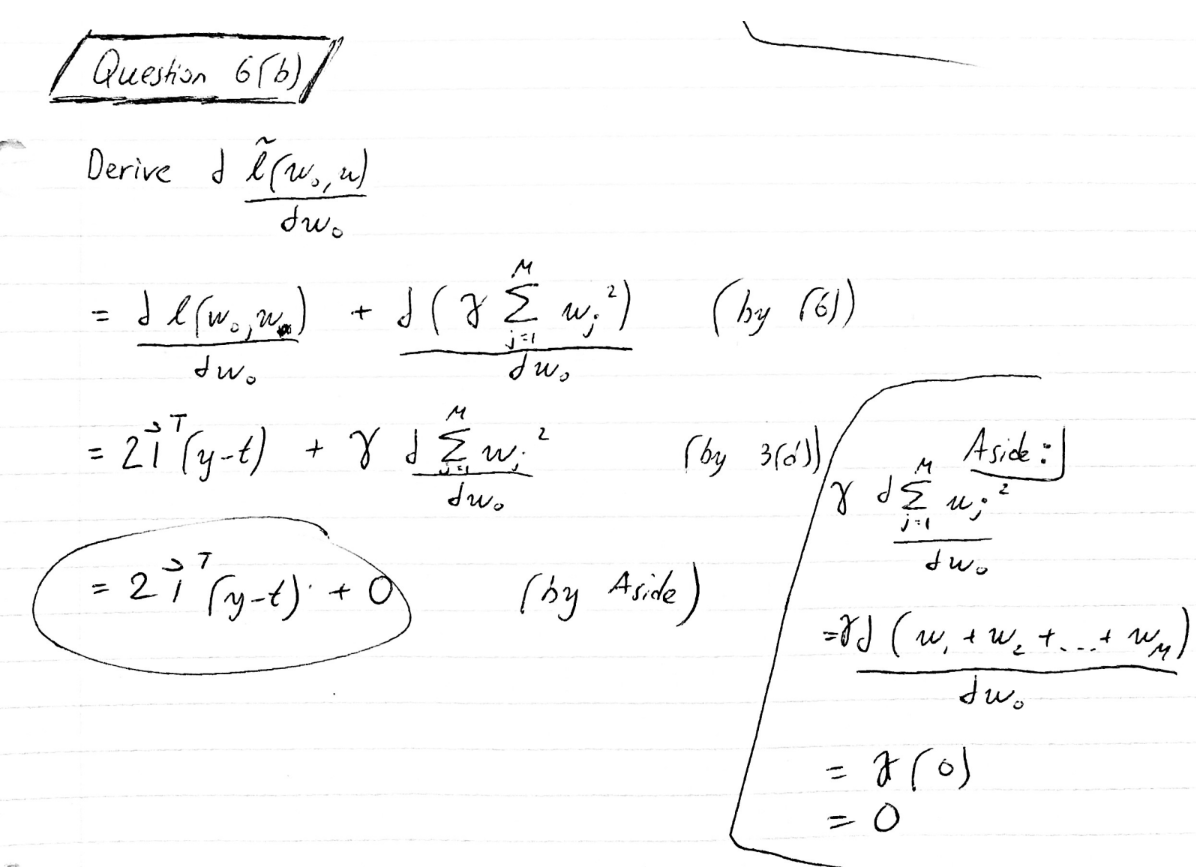 Question 6(b)
Derive d l̃(w₀, w) / dw₀
= d l(w₀, w) / dw₀ + d(γ Σ_{j=1}^{M} w_j²) / dw₀ (by (6))
= 2 1⃗ᵀ(y-t) + γ d Σ_{j=1}^{M} w_j² / dw₀ (by 3(d))
= 2 1⃗ᵀ(y-t) + 0 (by Aside)
Aside:
γ d Σ_{j=1}^{M} w_j² / dw₀
= γ d (w₁ + w₂ + ... + w_M) / dw₀
= γ(0)
= 0